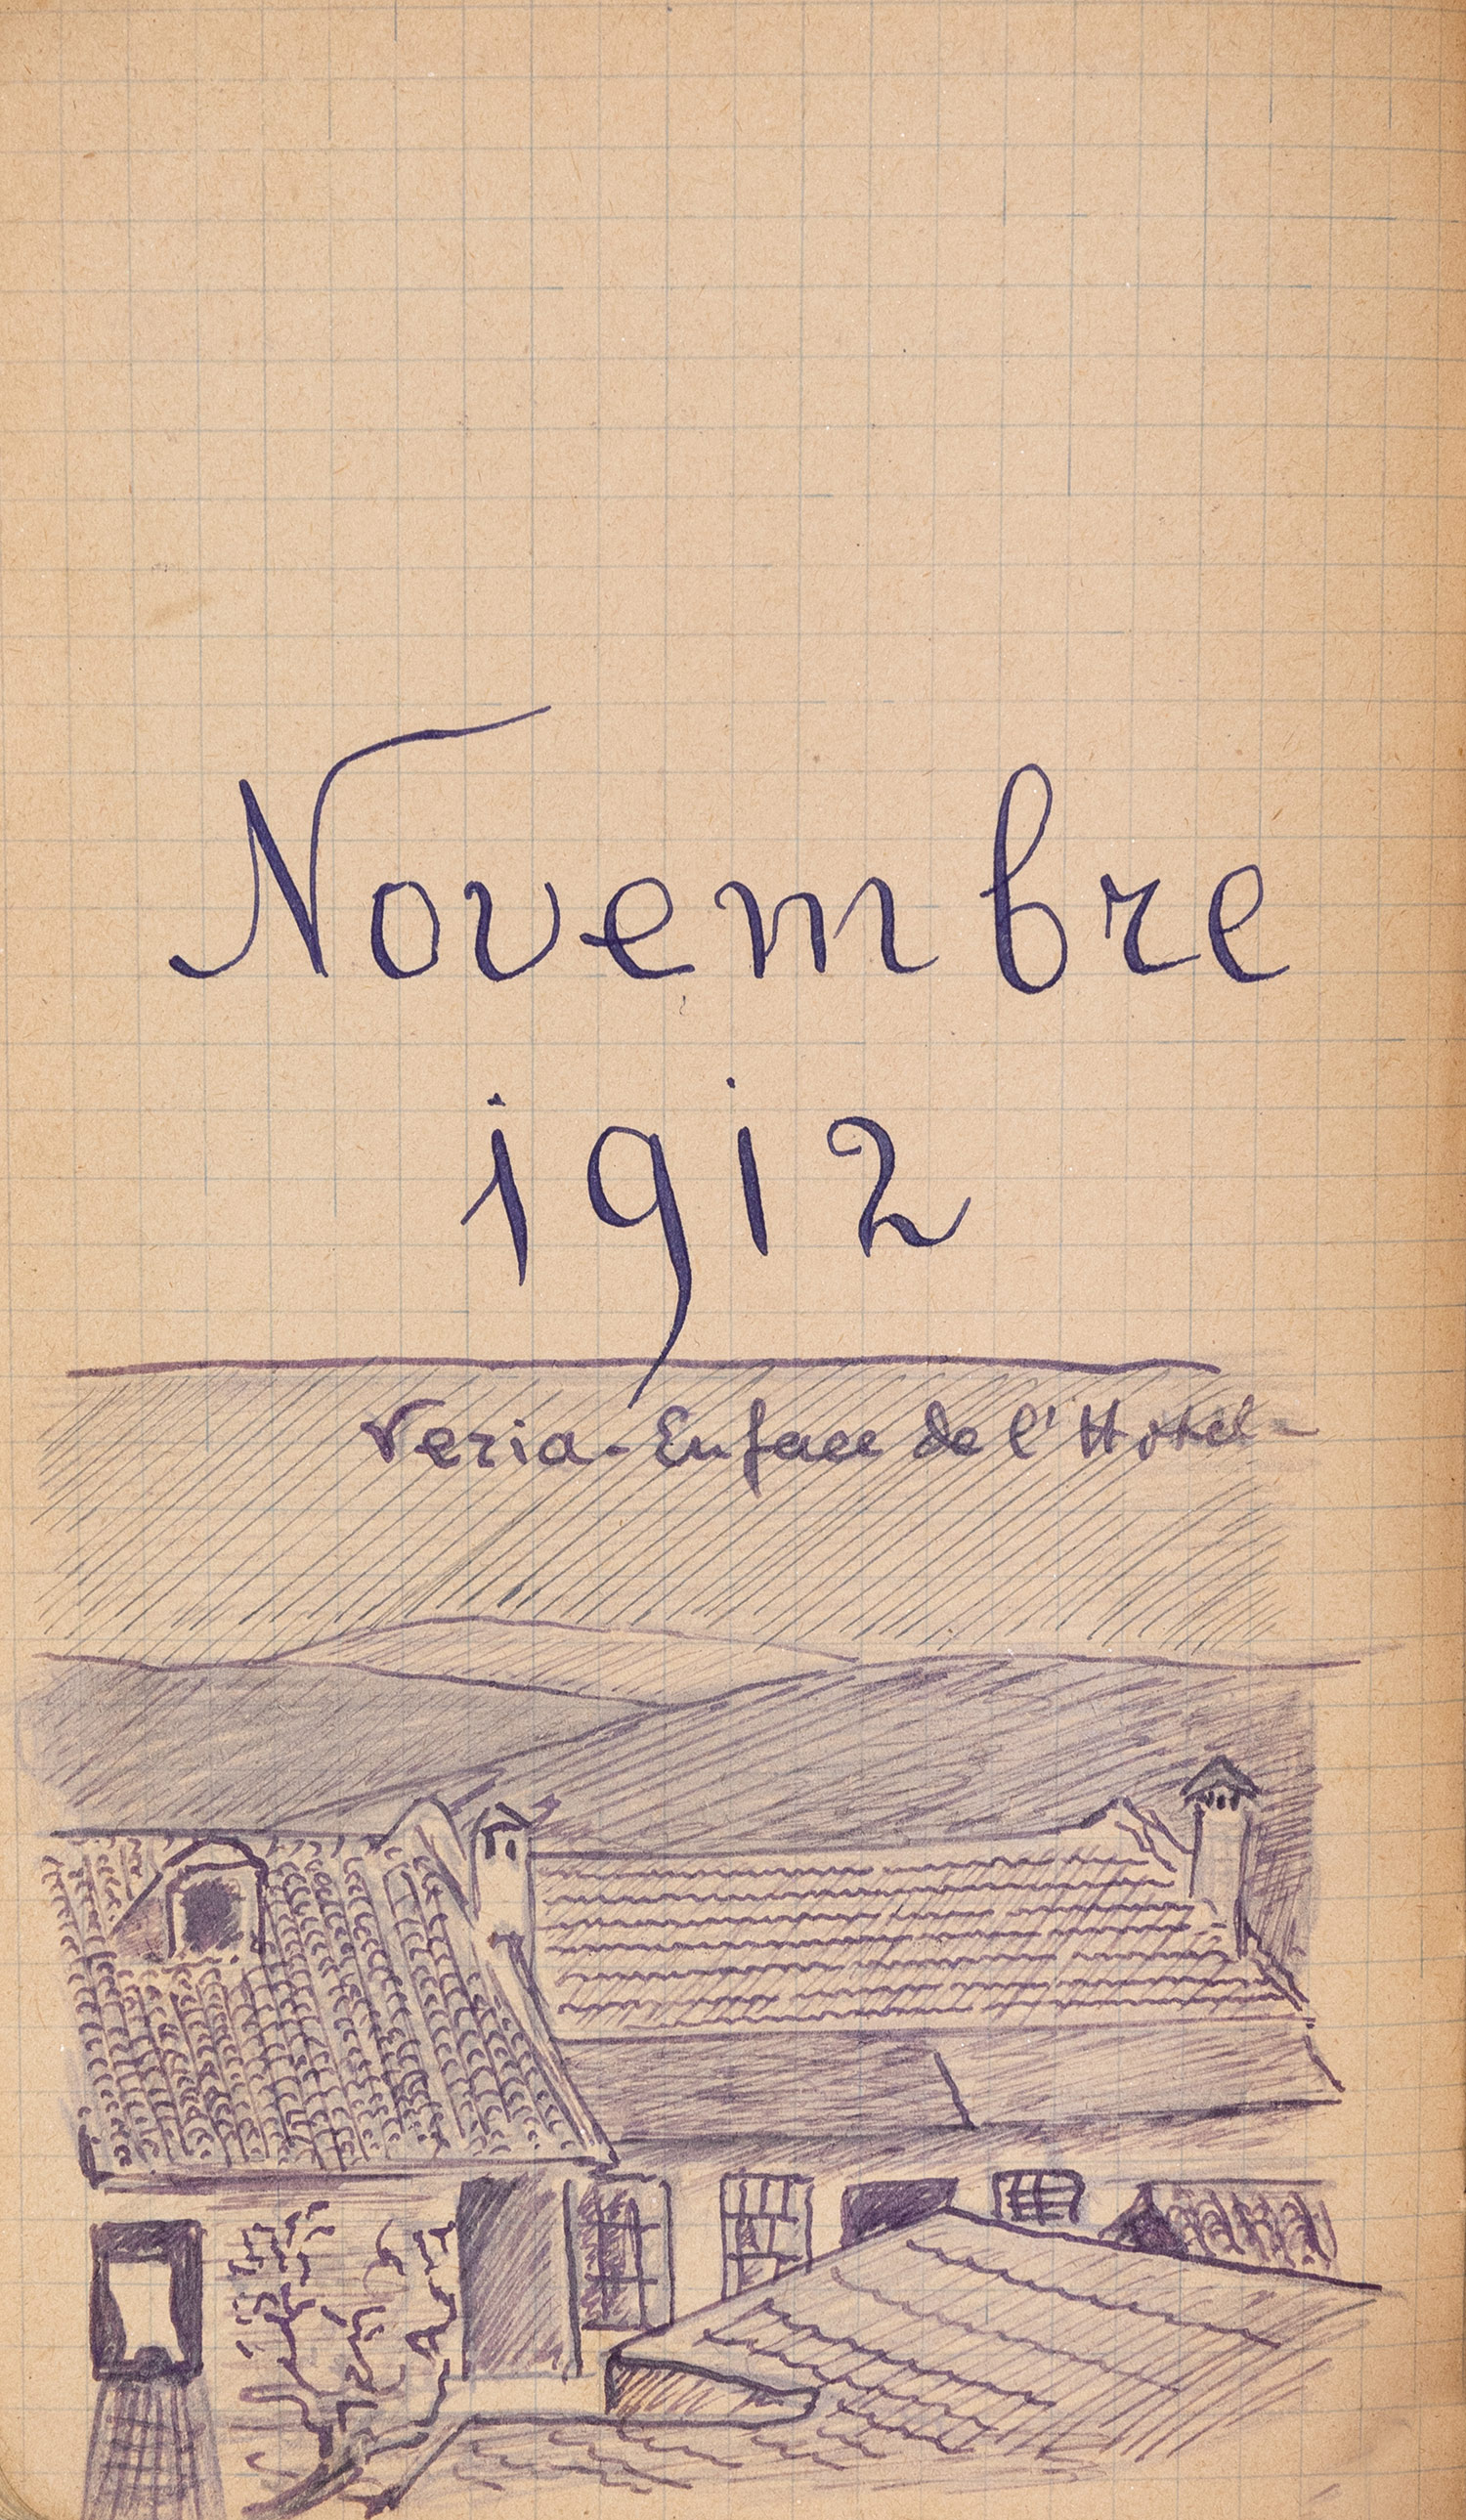 Novembre
1912
Veria - En face de l'Hotel -